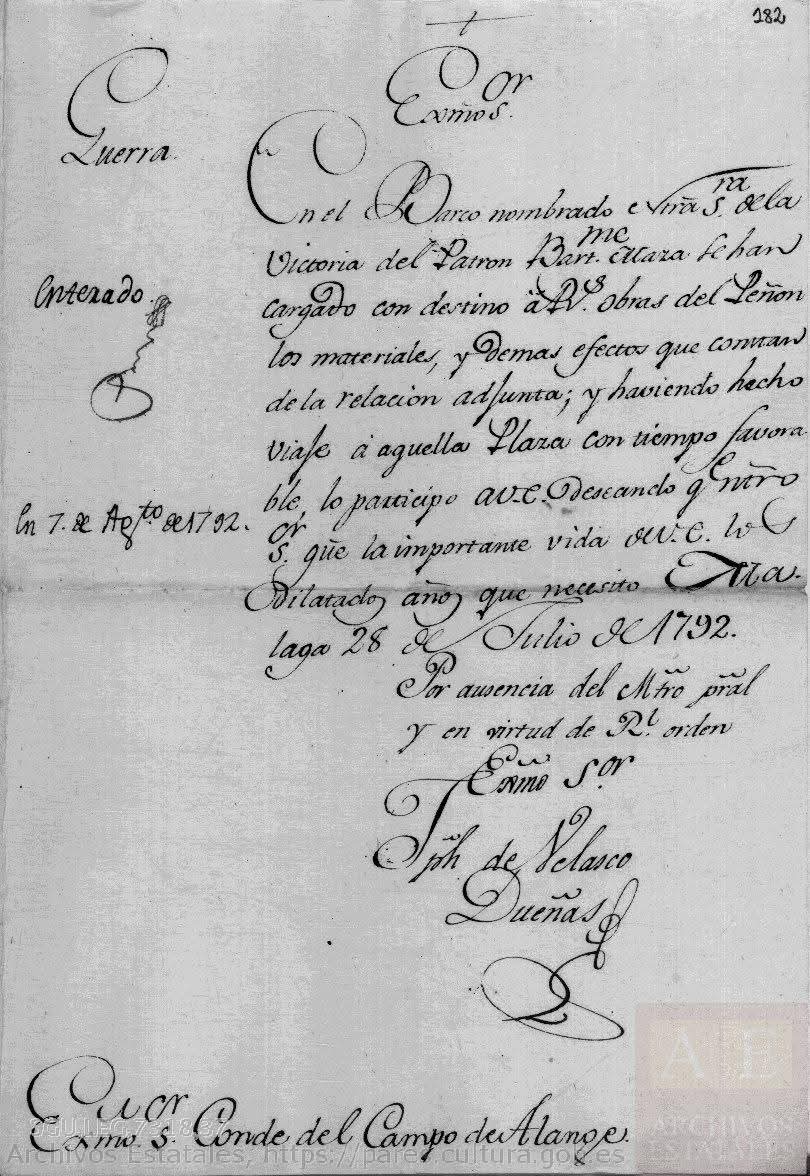 182
Exmo. Sor
Guerra.
En el Barco nombrado Ntra. Sra. de la
Victoria del Patron Bartme. Maza se han
cargado con destino à Rs. obras del Peñon
los materiales, y demas efectos que constan
de la relacion adjunta; y haviendo hecho
viaje à aquella Plaza con tiempo favora
ble, lo participo a V.E. deseando qe. Ntro
Sor. gue. la importante vida de V.E. los
dilatados años que necesito Ma-
laga 28 de Julio de 1792.
Enterado.
En 7. de Agto. de 1792.
Por ausencia del Mtro pral
y en virtud de Rl. orden
Exmo Sor
Jph. de Velasco
Dueñas
Exmo. Sor. Conde del Campo de Alange.
Archivos Estatales, https://pares.cultura.gob.es
AE
ARCHIVOS
ESTATALES